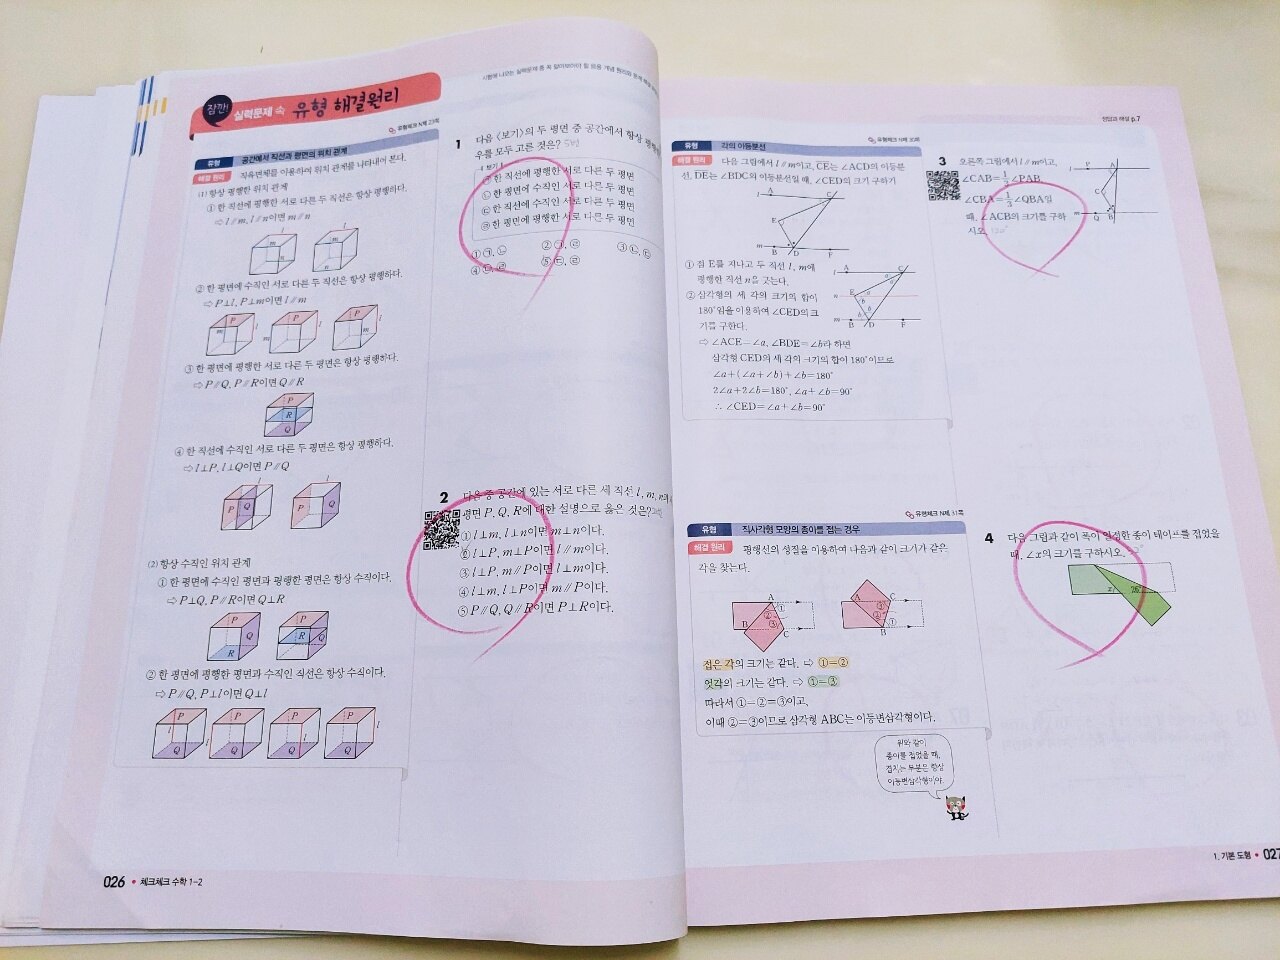 잠깐! 실력문제 속 유형 해결원리
유형체크 N제 23쪽
유형 공간에서 직선과 평면의 위치 관계
해결 원리 직육면체를 이용하여 위치 관계를 나타내어 본다.
(1) 항상 평행한 위치 관계
① 한 직선에 평행한 서로 다른 두 직선은 항상 평행하다.
⇨ l∥m, l∥n이면 m∥n
② 한 평면에 수직인 서로 다른 두 직선은 항상 평행하다.
⇨ P⊥l, P⊥m이면 l∥m
③ 한 평면에 평행한 서로 다른 두 평면은 항상 평행하다.
⇨ P∥Q, P∥R이면 Q∥R
④ 한 직선에 수직인 서로 다른 두 평면은 항상 평행하다.
⇨ l⊥P, l⊥Q이면 P∥Q
(2) 항상 수직인 위치 관계
① 한 평면에 수직인 평면과 평행한 평면은 항상 수직이다.
⇨ P⊥Q, P∥R이면 Q⊥R
② 한 평면에 평행한 평면과 수직인 직선은 항상 수직이다.
⇨ P∥Q, P⊥l이면 Q⊥l
026 • 체크체크 수학 1-2
1 다음 〈보기〉의 두 평면 중 공간에서 항상 평행
우를 모두 고른 것은?
보기
㉠ 한 직선에 평행한 서로 다른 두 평면
㉡ 한 평면에 수직인 서로 다른 두 평면
㉢ 한 직선에 수직인 서로 다른 두 평면
㉣ 한 평면에 평행한 서로 다른 두 평면
① ㉠, ㉡ ② ㉠, ㉣ ③ ㉡, ㉢
④ ㉡, ㉣ ⑤ ㉢, ㉣
2 다음 중 공간에 있는 서로 다른 세 직선 l, m, n과
평면 P, Q, R에 대한 설명으로 옳은 것은?
① l⊥m, l⊥n이면 m⊥n이다.
② l⊥P, m⊥P이면 l∥m이다.
③ l⊥P, m∥P이면 l⊥m이다.
④ l⊥m, l⊥P이면 m∥P이다.
⑤ P∥Q, Q∥R이면 P⊥R이다.
정답과 해설 p.7
유형체크 N제 30쪽
유형 각의 이등분선
해결 원리 다음 그림에서 l∥m이고, CE는 ∠ACD의 이등분
선, DE는 ∠BDC의 이등분선일 때, ∠CED의 크기 구하기
① 점 E를 지나고 두 직선 l, m에
평행한 직선 n을 긋는다.
② 삼각형의 세 각의 크기의 합이
180°임을 이용하여 ∠CED의 크
기를 구한다.
⇨ ∠ACE=∠a, ∠BDE=∠b라 하면
삼각형 CED의 세 각의 크기의 합이 180°이므로
∠a+(∠a+∠b)+∠b=180°
2∠a+2∠b=180°, ∠a+∠b=90°
∴ ∠CED=∠a+∠b=90°
유형체크 N제 31쪽
유형 직사각형 모양의 종이를 접는 경우
해결 원리 평행선의 성질을 이용하여 다음과 같이 크기가 같은
각을 찾는다.
접은 각의 크기는 같다. ⇨ ①=②
엇각의 크기는 같다. ⇨ ①=③
따라서 ①=②=③이고,
이때 ②=③이므로 삼각형 ABC는 이등변삼각형이다.
위와 같이
종이를 접었을 때,
겹치는 부분은 항상
이등변삼각형이야.
3 오른쪽 그림에서 l∥m이고,
∠CAB=1/3∠PAB,
∠CBA=1/3∠QBA일
때, ∠ACB의 크기를 구하
시오. 120°
4 다음 그림과 같이 폭이 일정한 종이 테이프를 접었을
때, ∠x의 크기를 구하시오.
1. 기본 도형 • 027